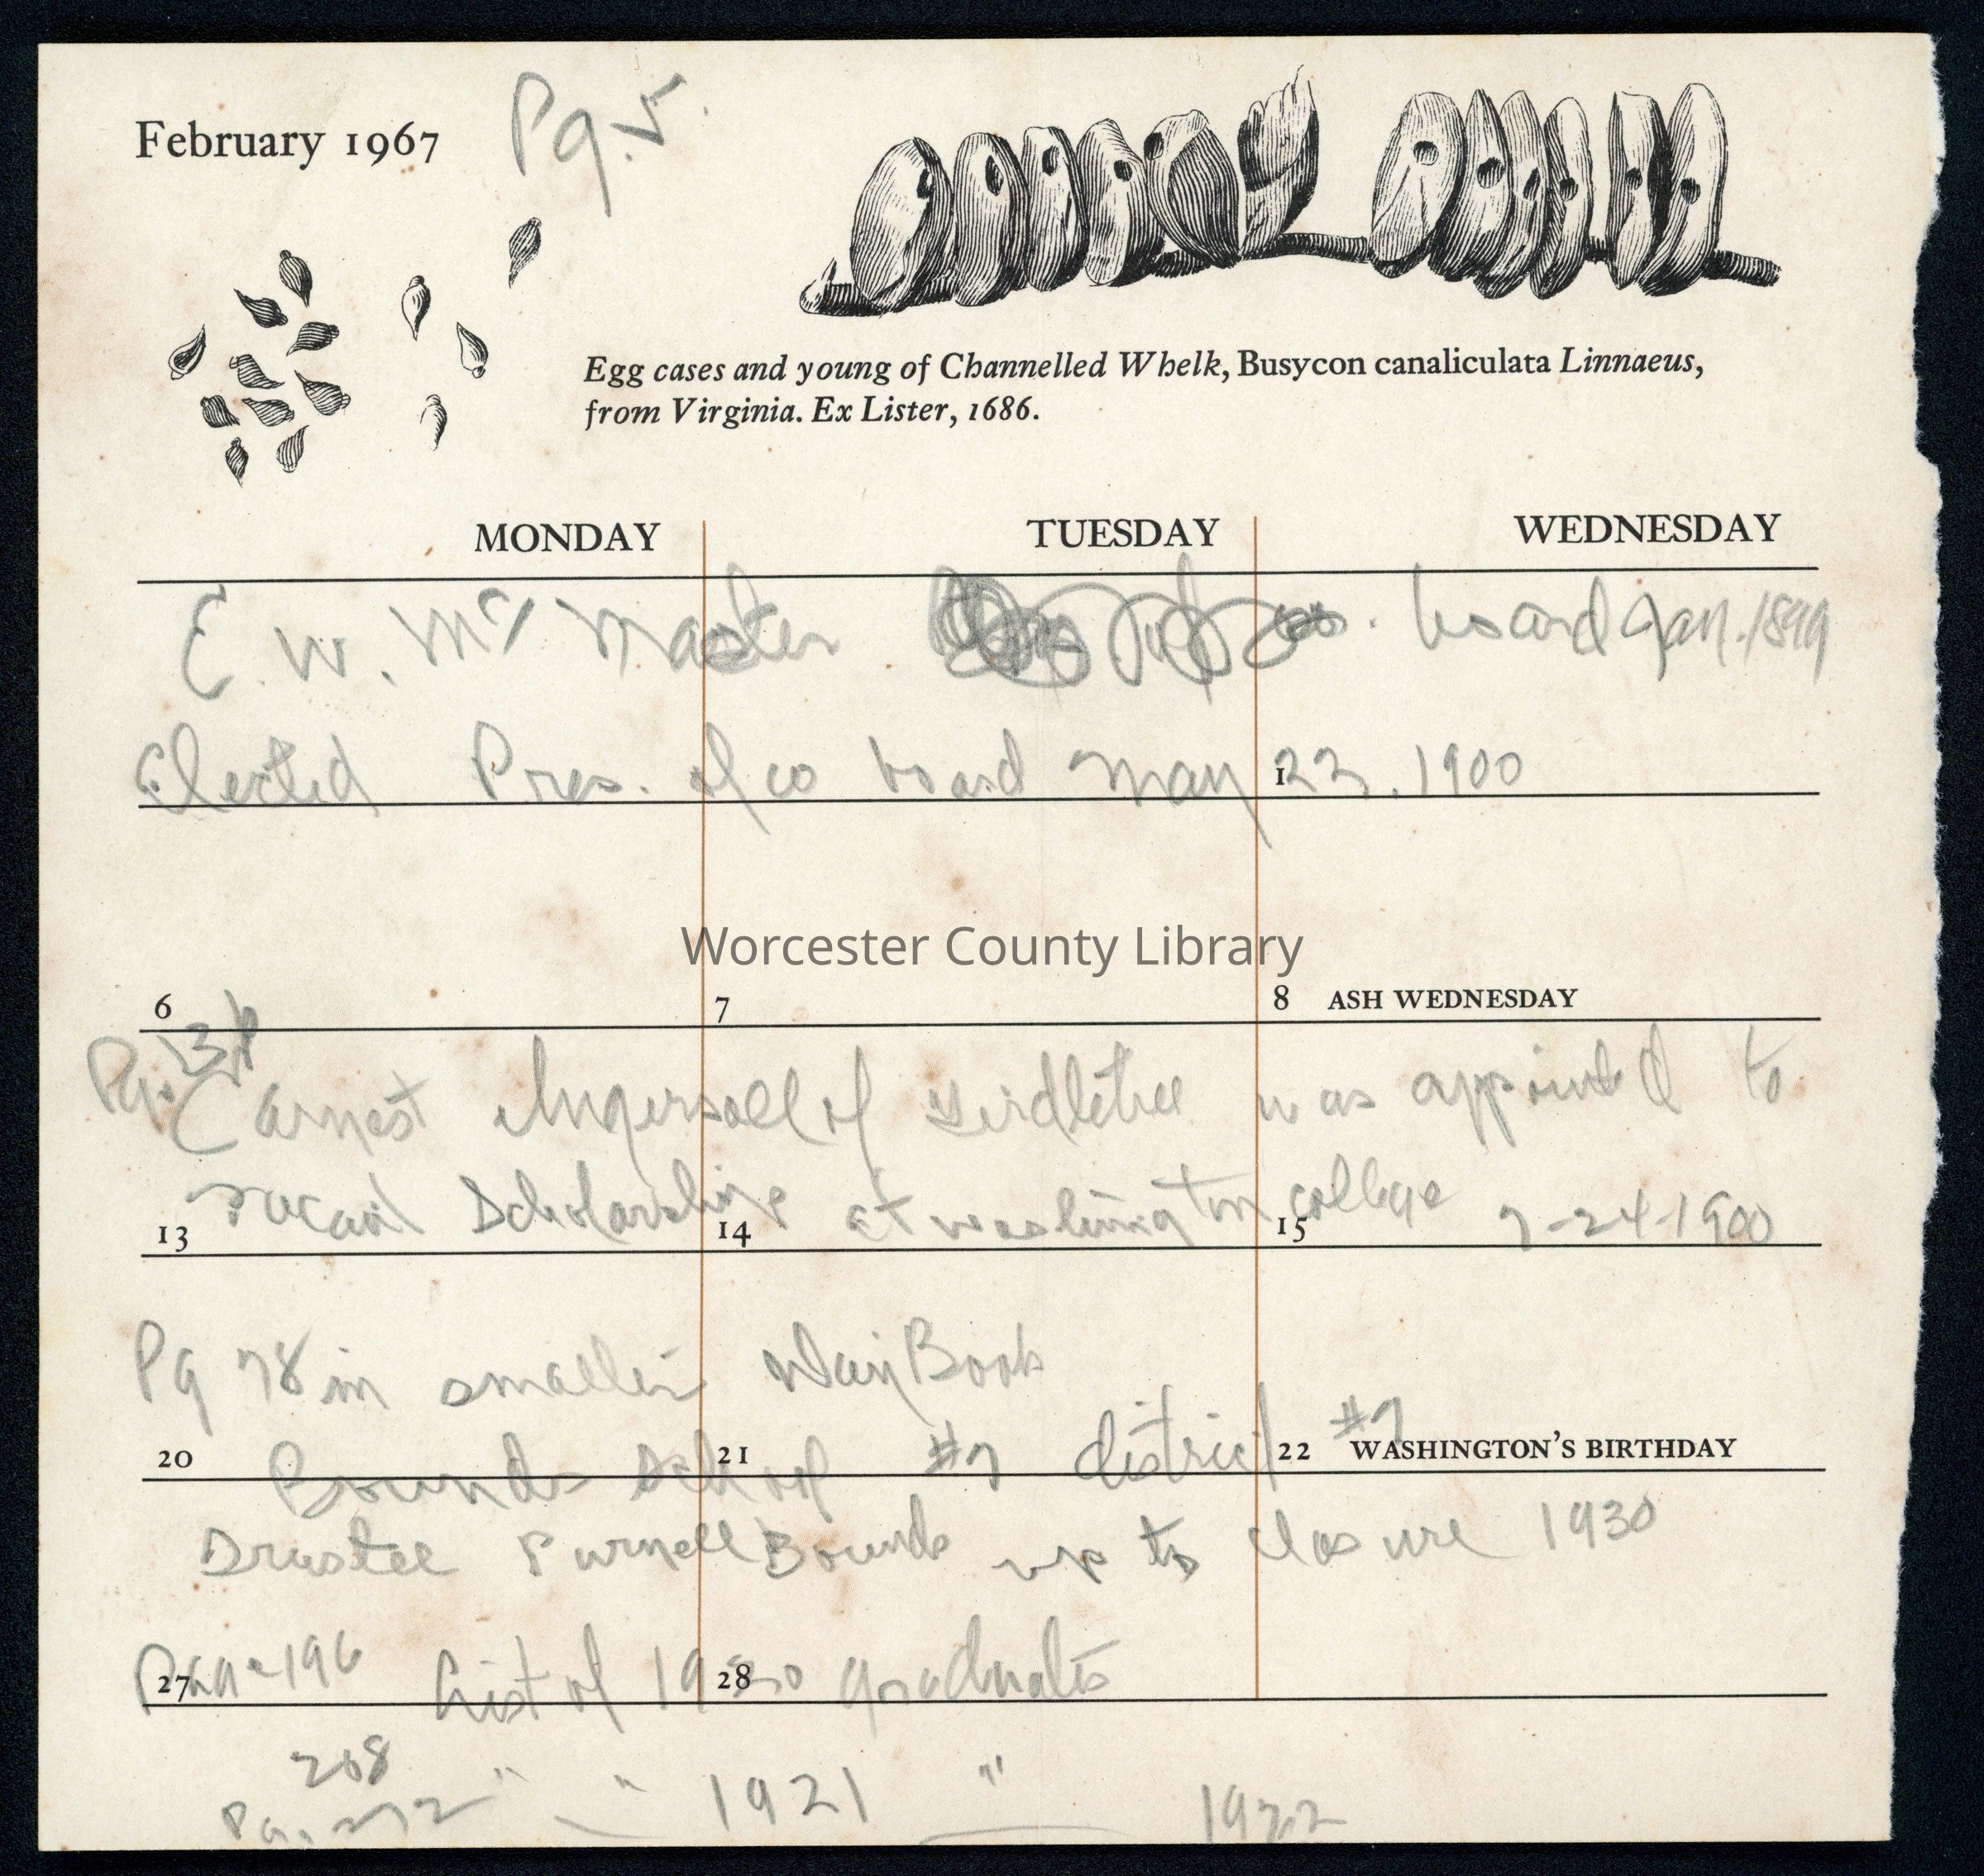 February 1967
Pg. 5.
Egg cases and young of Channelled Whelk, Busycon canaliculata Linnaeus,
from Virginia. Ex Lister, 1686.
MONDAY TUESDAY WEDNESDAY
E. W. Mc Master co. board Jan. 1899
Elected Pres. of co board May 23, 1900
1
Worcester County Library
6 7 8 ASH WEDNESDAY
Pg.
Earnest Ingersoll of Girdletree was appointed to
Scholarship at Washington college 7-24-1900
13 14 15
Pg 78 in smaller Day Book
Bounds School #7 district #7
20 21 22 WASHINGTON'S BIRTHDAY
Trustee Purnell Bounds up to closure 1930
Page 196 List of graduates
27 28
208 " " 1921 "
Pg. 1922